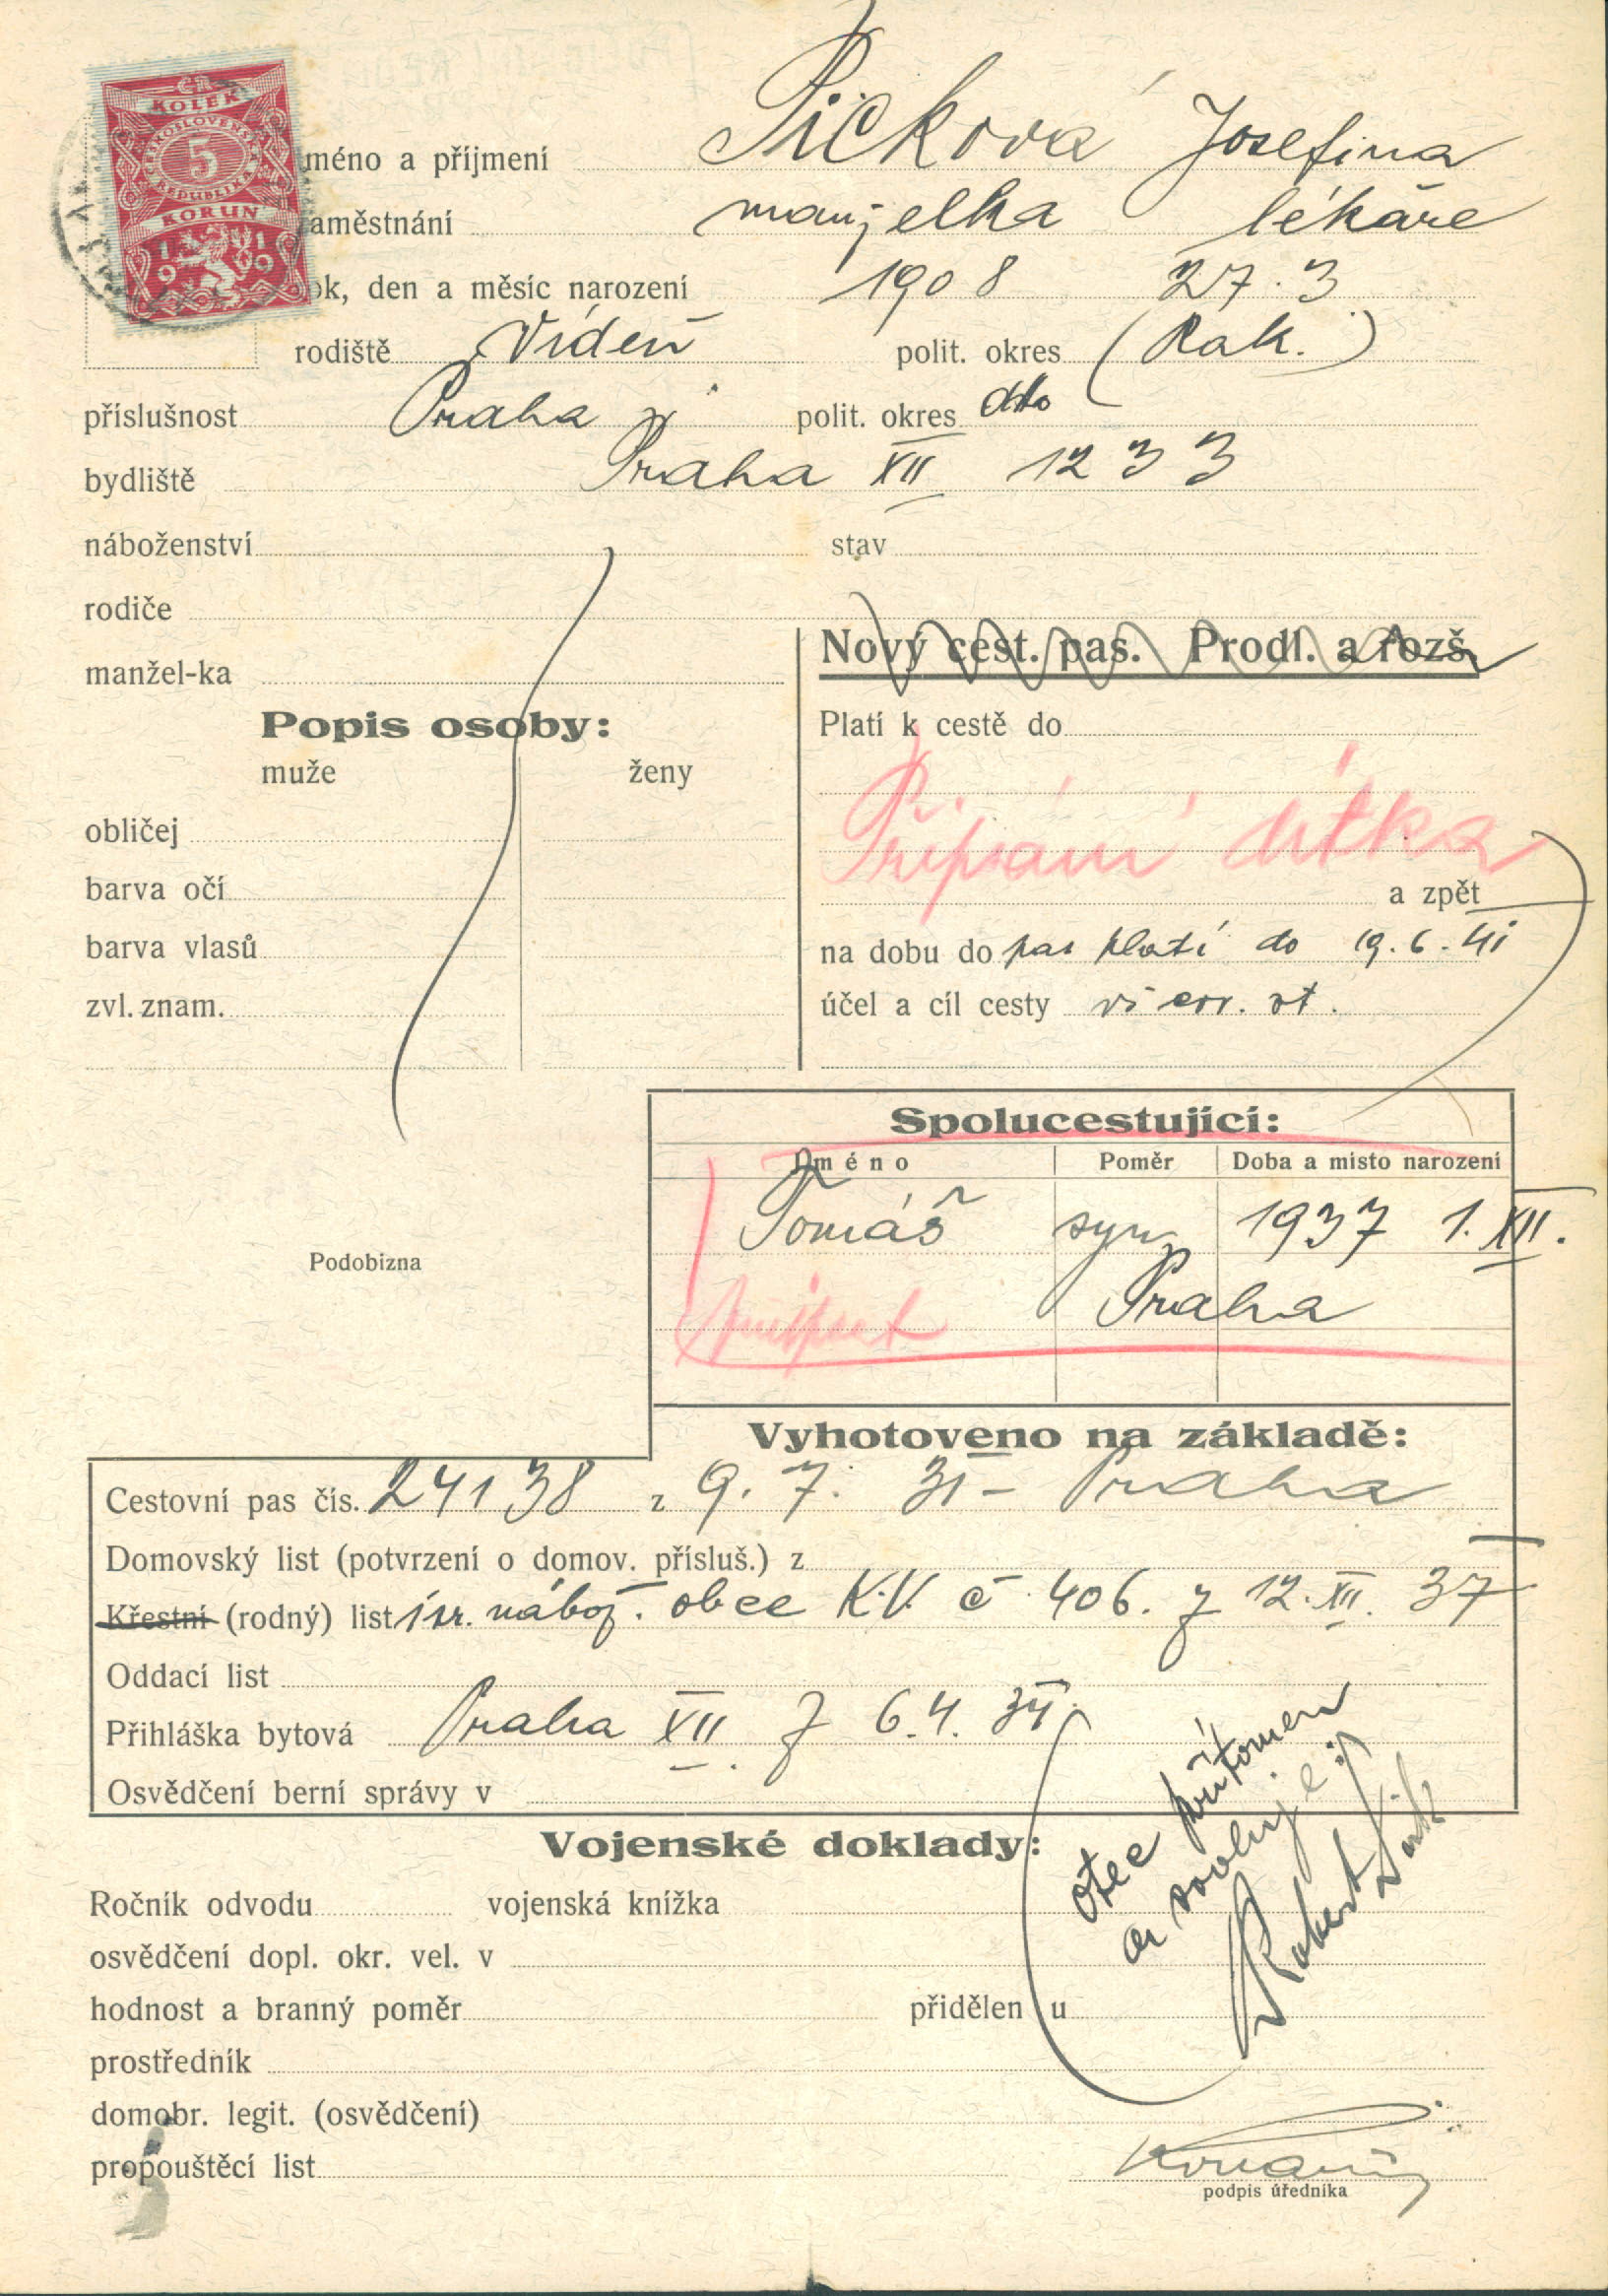 ČR
KOLEK
ČESKOSLOVENSKÁ
5
REPUBLIKA
KORUN
1919
méno a příjmení Pičková Josefina
aměstnání manželka lékaře
ok, den a měsíc narození 1908 27. 3
rodiště Vídeň polit. okres (Rak.)
příslušnost Praha polit. okres dto
bydliště Praha XII 1233
náboženství stav
rodiče
manžel-ka
Nový cest. pas. Prodl. a rozš.
Popis osoby:
muže ženy
obličej
barva očí
barva vlasů
zvl. znam.
Platí k cestě do
Připsání dítka
a zpět
na dobu do pas platí do 19. 6. 41
účel a cíl cesty vš evr. st.
Podobizna
Spolucestující:
Jméno Poměr Doba a místo narození
Tomáš syn 1937 1. XII.
Praha
Vyhotoveno na základě:
Cestovní pas čís. 24138 z 9. 7. 31 - Praha
Domovský list (potvrzení o domov. přísluš.) z
Křestní (rodný) list isr. nábož. obce K.V. č 406. z 12. XII. 37
Oddací list
Přihláška bytová Praha XII. z 6. 4. 34
Osvědčení berní správy v
otec přítomen
a svoluje:
Robert Pick
Vojenské doklady:
Ročník odvodu vojenská knížka
osvědčení dopl. okr. vel. v
hodnost a branný poměr přidělen u
prostředník
domobr. legit. (osvědčení)
propouštěcí list
podpis úředníka